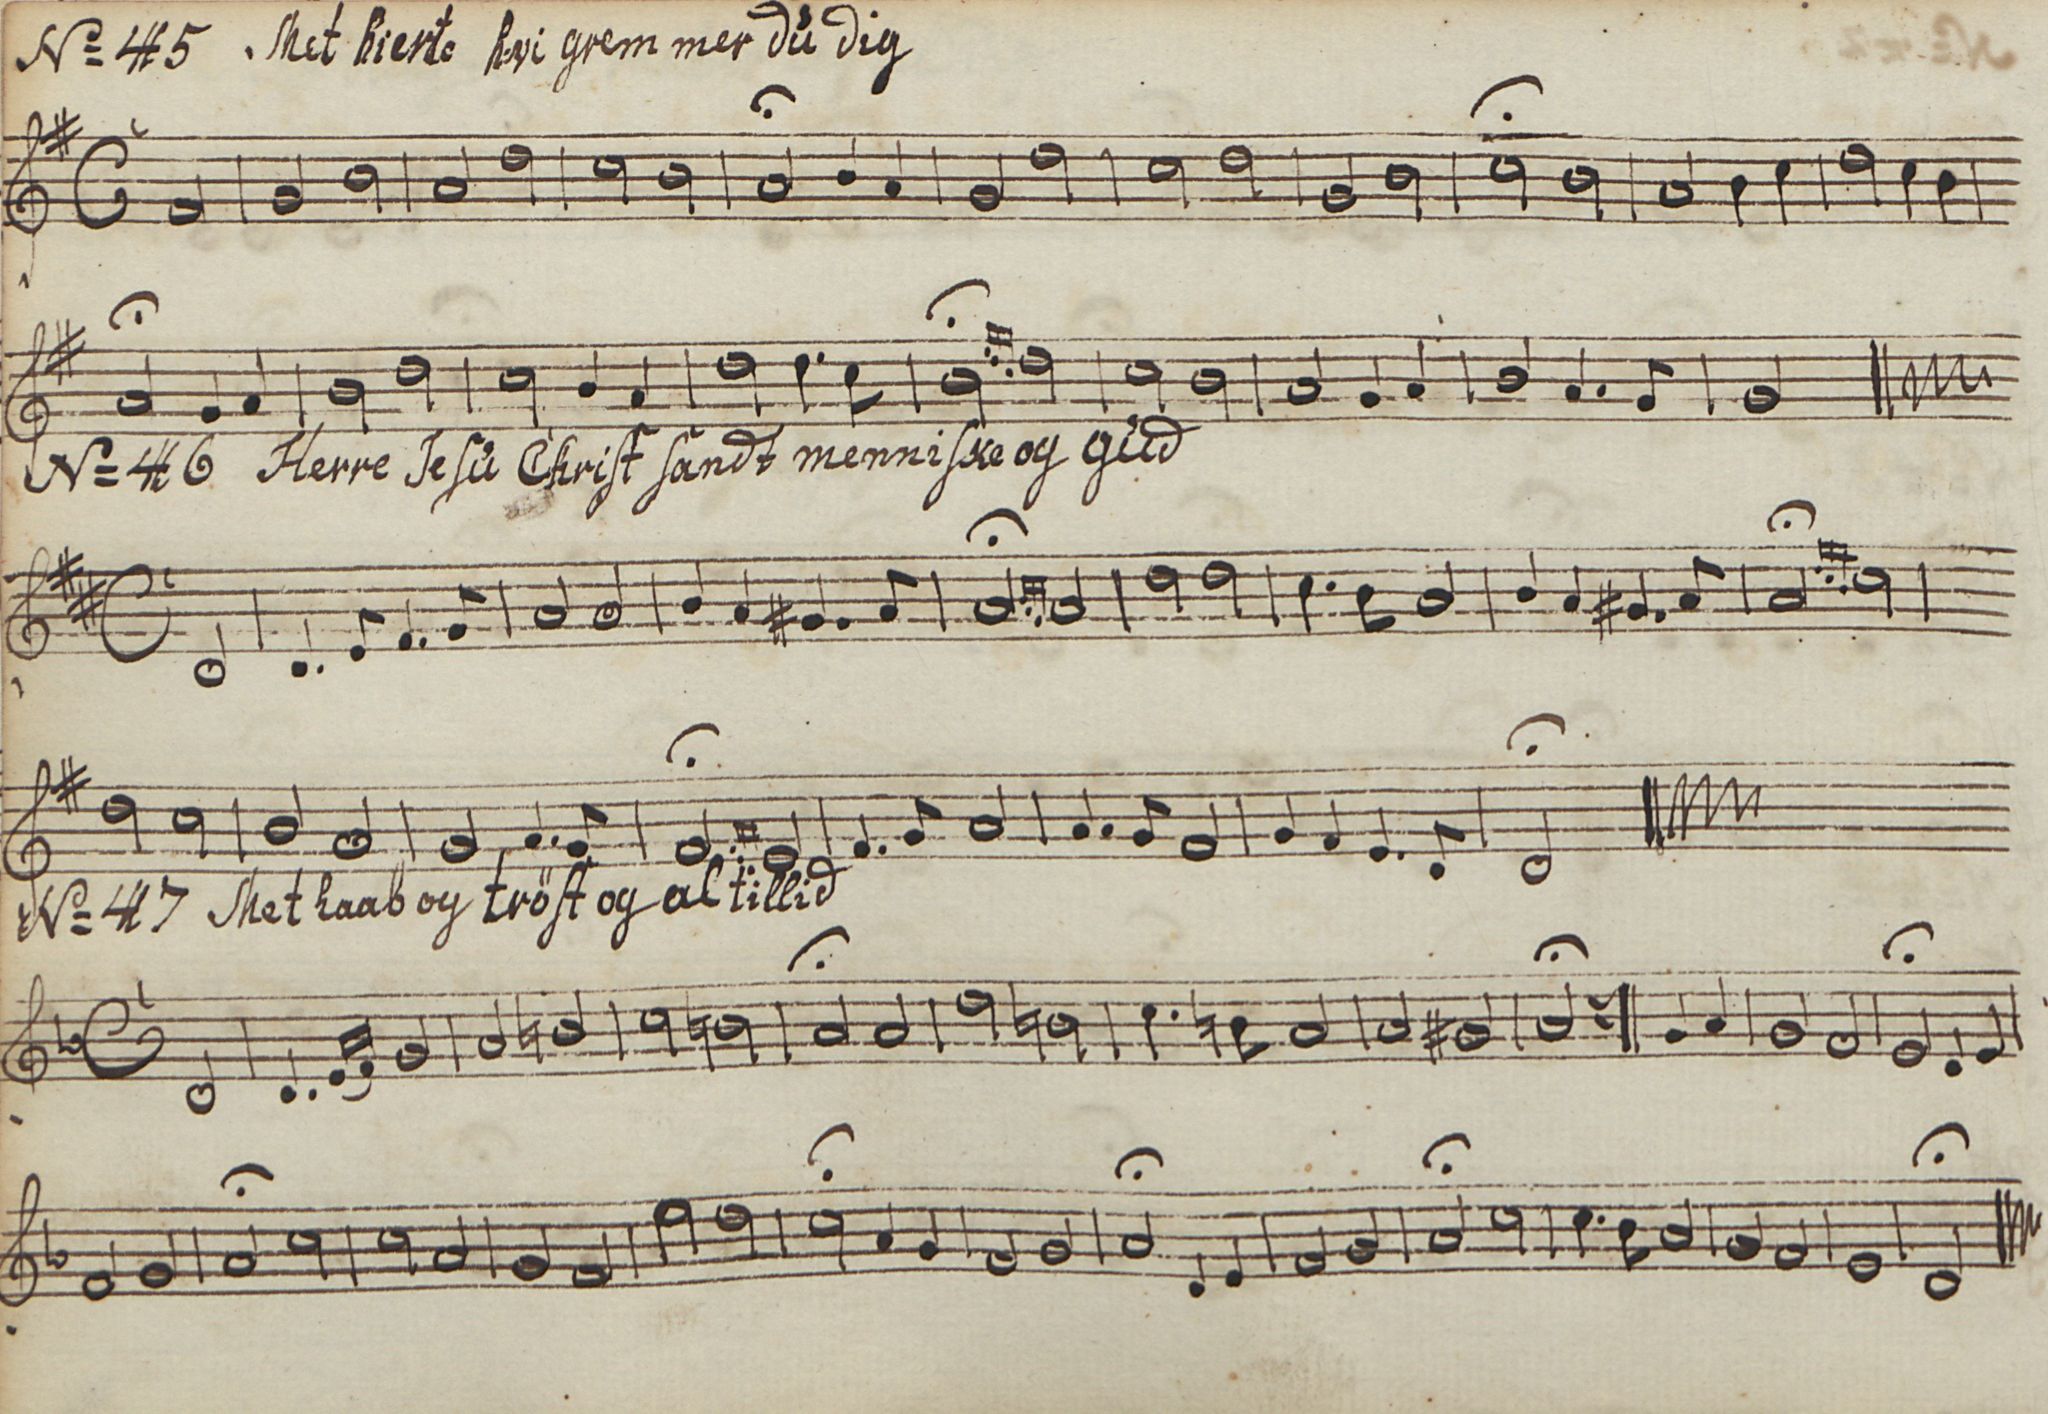 No 45 Met hierte hvi gremmer dů dig
No 46 Herre Jesů Christ sandt menniske og gůd
No 47 Met haab og tröst og al tillid